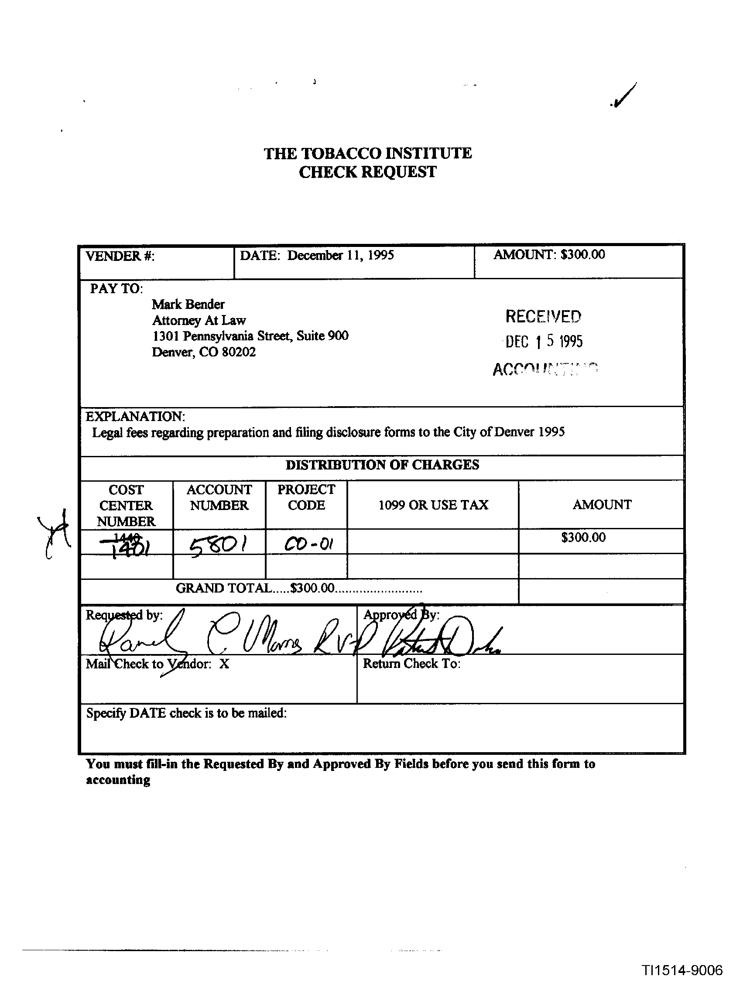 THE TOBACCO INSTITUTE
CHECK REQUEST
VENDER #: DATE: December 11, 1995 AMOUNT: $300.00
PAY TO:
Mark Bender
Attorney At Law
1301 Pennsylvania Street, Suite 900
Denver, CO 80202
RECEIVED
DEC 15 1995
ACCOUNTING
EXPLANATION:
Legal fees regarding preparation and filing disclosure forms to the City of Denver 1995
DISTRIBUTION OF CHARGES
COST CENTER NUMBER ACCOUNT NUMBER PROJECT CODE 1099 OR USE TAX AMOUNT
1440
1401 5801 CO-01 $300.00
GRAND TOTAL.....$300.00.........................
Requested by: Approved By:
C. Morris RVP
Mail Check to Vendor: X Return Check To:
Specify DATE check is to be mailed:
You must fill-in the Requested By and Approved By Fields before you send this form to
accounting
TI1514-9006